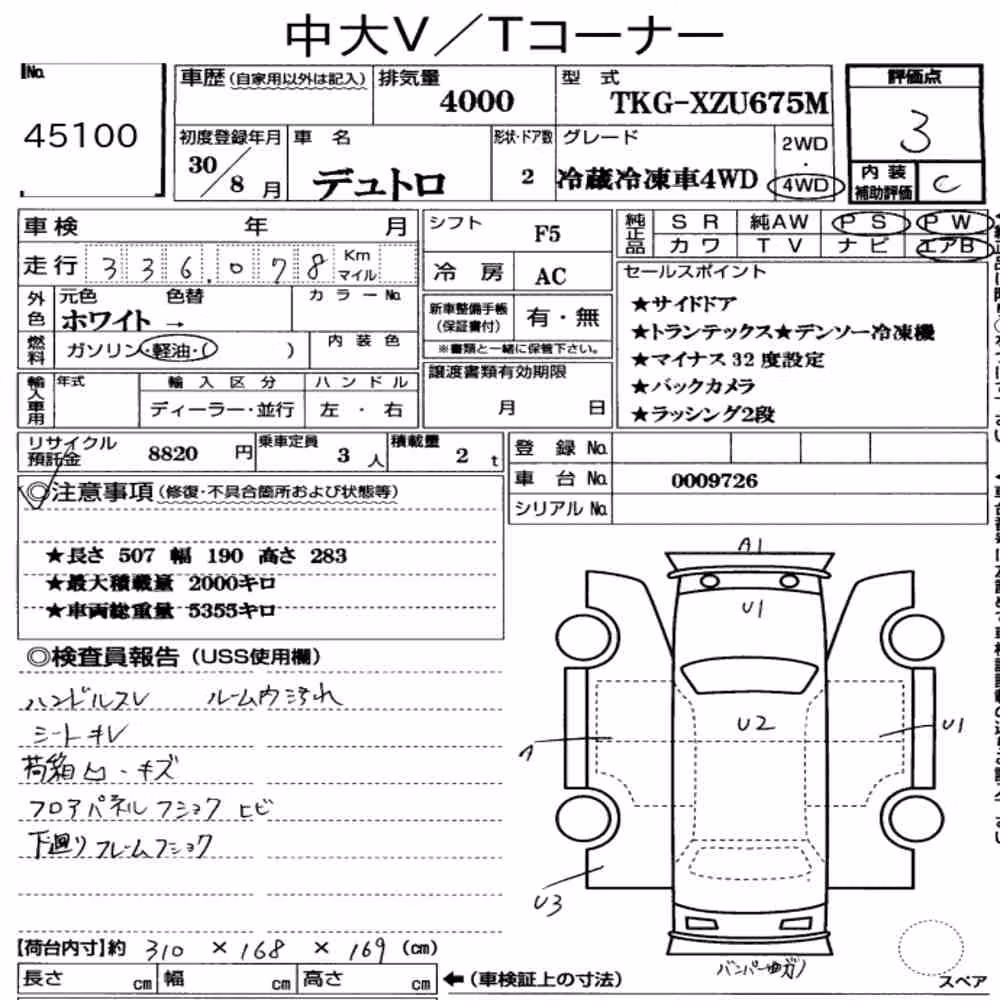 中大V／Tコーナー
No.
45100
車歴（自家用以外は記入）
排気量
4000
型 式
TKG-XZU675M
評価点
3
内装補助評価
C
初度登録年月
30／8月
車 名
デュトロ
形状・ドア数
2
グレード
冷蔵冷凍車4WD
2WD
・
4WD
車検 年 月
走行 336,078 Km マイル
外色
元色 色替
ホワイト →
カラーNo.
燃料
ガソリン・軽油・( )
内装色
輸入車用
年式
輸入区分
ディーラー・並行
ハンドル
左 ・ 右
シフト
F5
冷 房
AC
新車整備手帳
（保証書付）
有・無
※書類と一緒に保管下さい。
譲渡書類有効期限
月 日
純正品
SR 純AW PS PW
カワ TV ナビ エアB
セールスポイント
★サイドドア
★トランテックス★デンソー冷凍機
★マイナス32度設定
★バックカメラ
★ラッシング2段
リサイクル預託金
8820 円
乗車定員
3 人
積載量
2 t
登 録 No.
車 台 No.
0009726
シリアル No.
◎注意事項（修復・不具合箇所および状態等）
★長さ 507 幅 190 高さ 283
★最大積載量 2000キロ
★車両総重量 5355キロ
◎検査員報告（USS使用欄）
ハンドルスレ ルーム内汚れ
シートキレ
荷箱凸・キズ
フロアパネルフショク ヒビ
下廻りフレームフショク
A1
U1
U2
U1
U3
【荷台内寸】約 310 × 168 × 169 (cm)
長さ cm 幅 cm 高さ cm
←（車検証上の寸法）
スペア